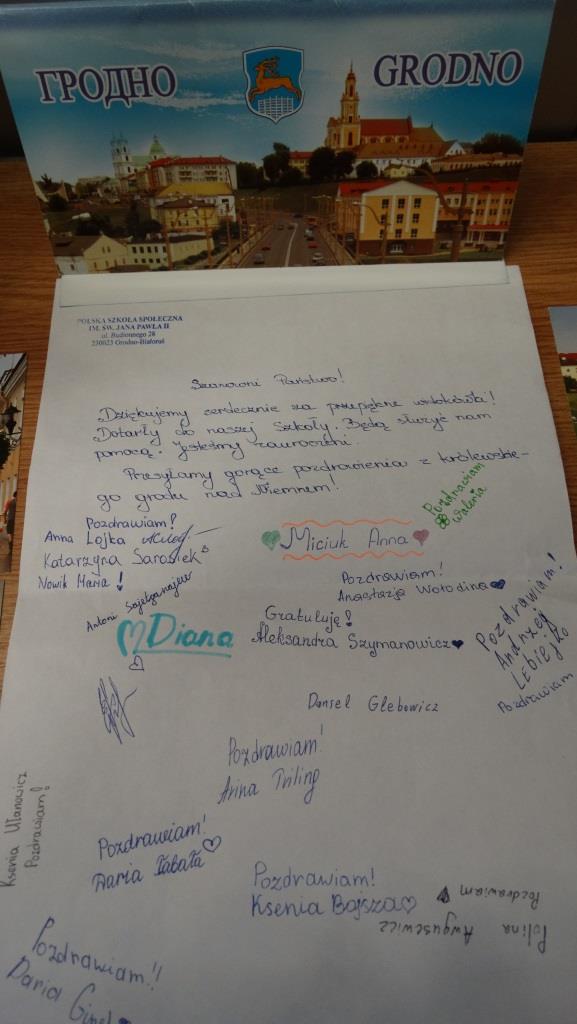 ГРОДНО
GRODNO
POLSKA SZKOŁA SPOŁECZNA
IM. ŚW. JANA PAWŁA II
ul. Budionnego 28
230023 Grodno-Białoruś
Szanowni Państwo!
Dziękujemy serdecznie za przepiękne
Dotarły do naszej Szkoły. Będą służyć nam
pomocą. Jesteśmy zauroczeni.
Przesyłamy gorące pozdrowienia z królewskie-
go grodu nad Niemnem!
Pozdrawiam
Waleria
Pozdrawiam!
Anna Lojka
Katarzyna Sarosiek
Nowik Maria!
Miciuk Anna
Pozdrawiam!
Anastazja Wołodina
Antoni
Diana
Gratuluję!
Aleksandra Szymanowicz
Pozdrawiam!
Andrzej
Lebiejko
Pozdrawiam
Daniel Glebowicz
Pozdrawiam!
Arina Triling
Ksenia Ułanowicz
Pozdrawiam!
Pozdrawiam!
Daria
Pozdrawiam!
Ksenia Bojsza
Polina Awgusewicz
Pozdrawiam
Pozdrawiam!!
Daria